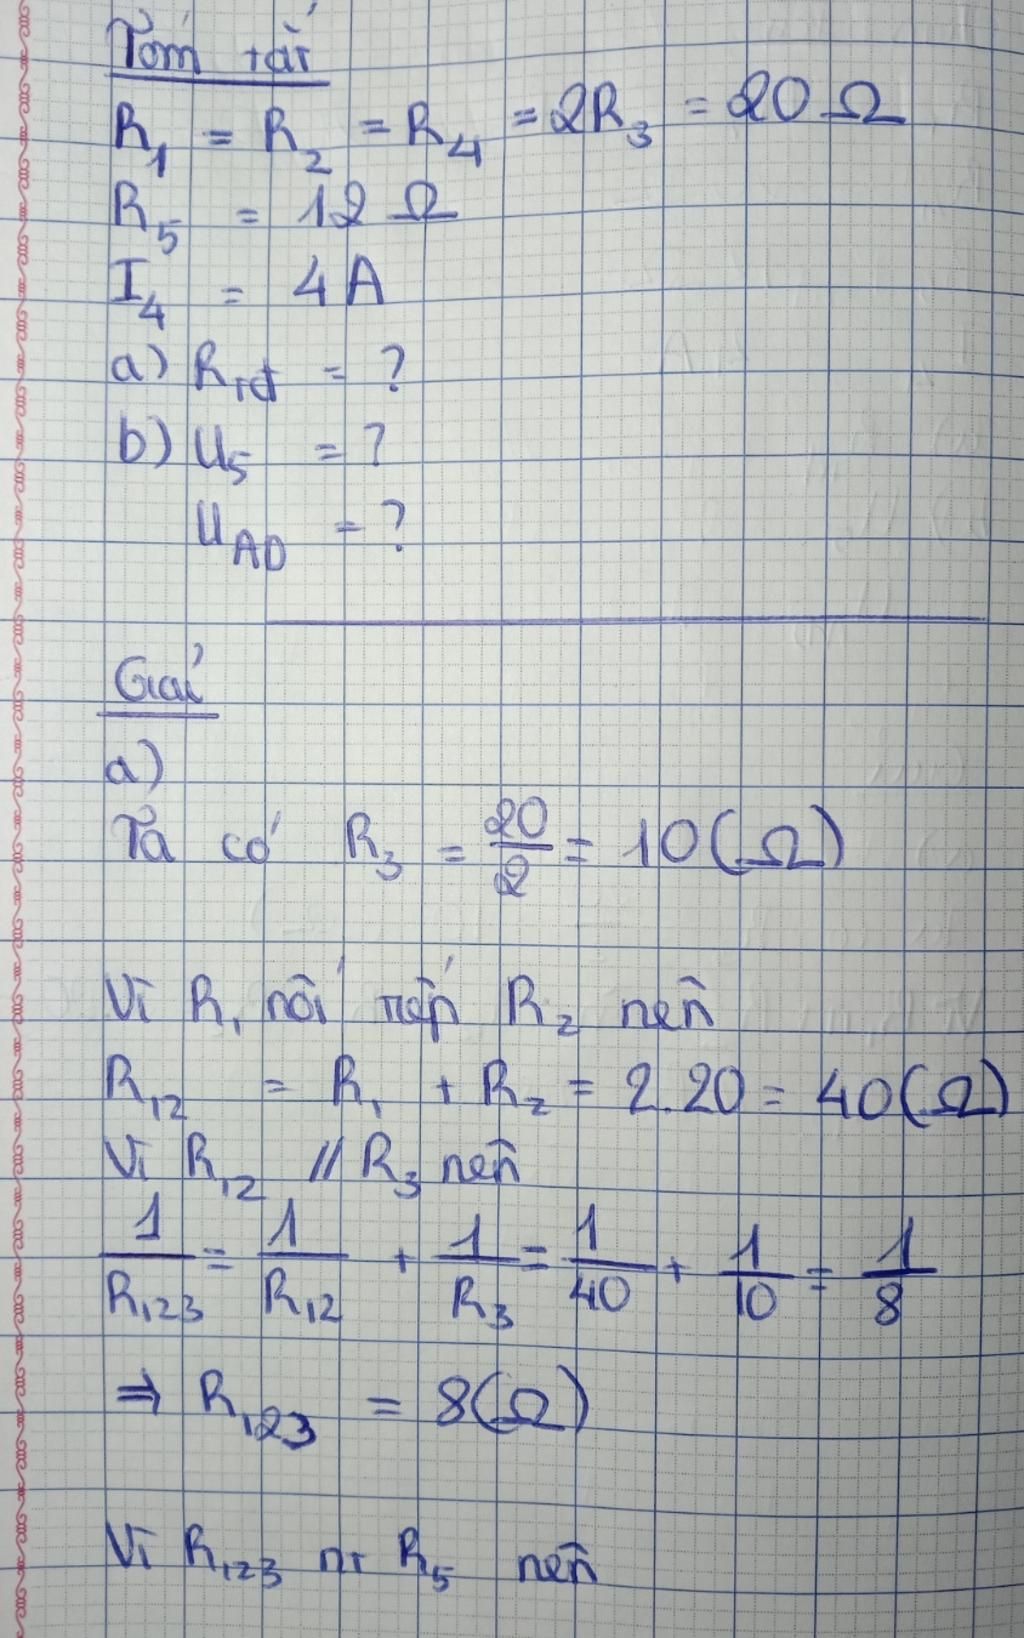 Tóm tắt
R₁ = R₂ = R₄ = 2R₃ = 20 Ω
R₅ = 12 Ω
I₄ = 4A
a) Rtđ = ?
b) U₅ = ?
U_AD = ?
Giải
a)
Ta có R₃ = 20/2 = 10(Ω)
Vì R₁ nối tiếp R₂ nên
R₁₂ = R₁ + R₂ = 2.20 = 40(Ω)
Vì R₁₂ // R₃ nên
1/R₁₂₃ = 1/R₁₂ + 1/R₃ = 1/40 + 1/10 = 1/8
⇒ R₁₂₃ = 8(Ω)
Vì R₁₂₃ nt R₅ nên